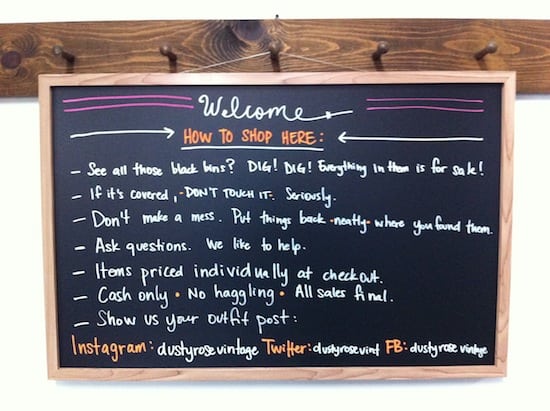 Welcome
HOW TO SHOP HERE:
- See all those black bins? DIG! DIG! Everything in them is for sale!
- If it's covered, -DON'T TOUCH IT- Seriously.
- Don't make a mess. Put things back -neatly- where you found them.
- Ask questions. We like to help.
- Items priced individually at checkout.
- Cash only • No haggling • All sales final.
- Show us your outfit post:
Instagram: dustyrosevintage Twitter: dustyrosevint FB: dustyrose vintage